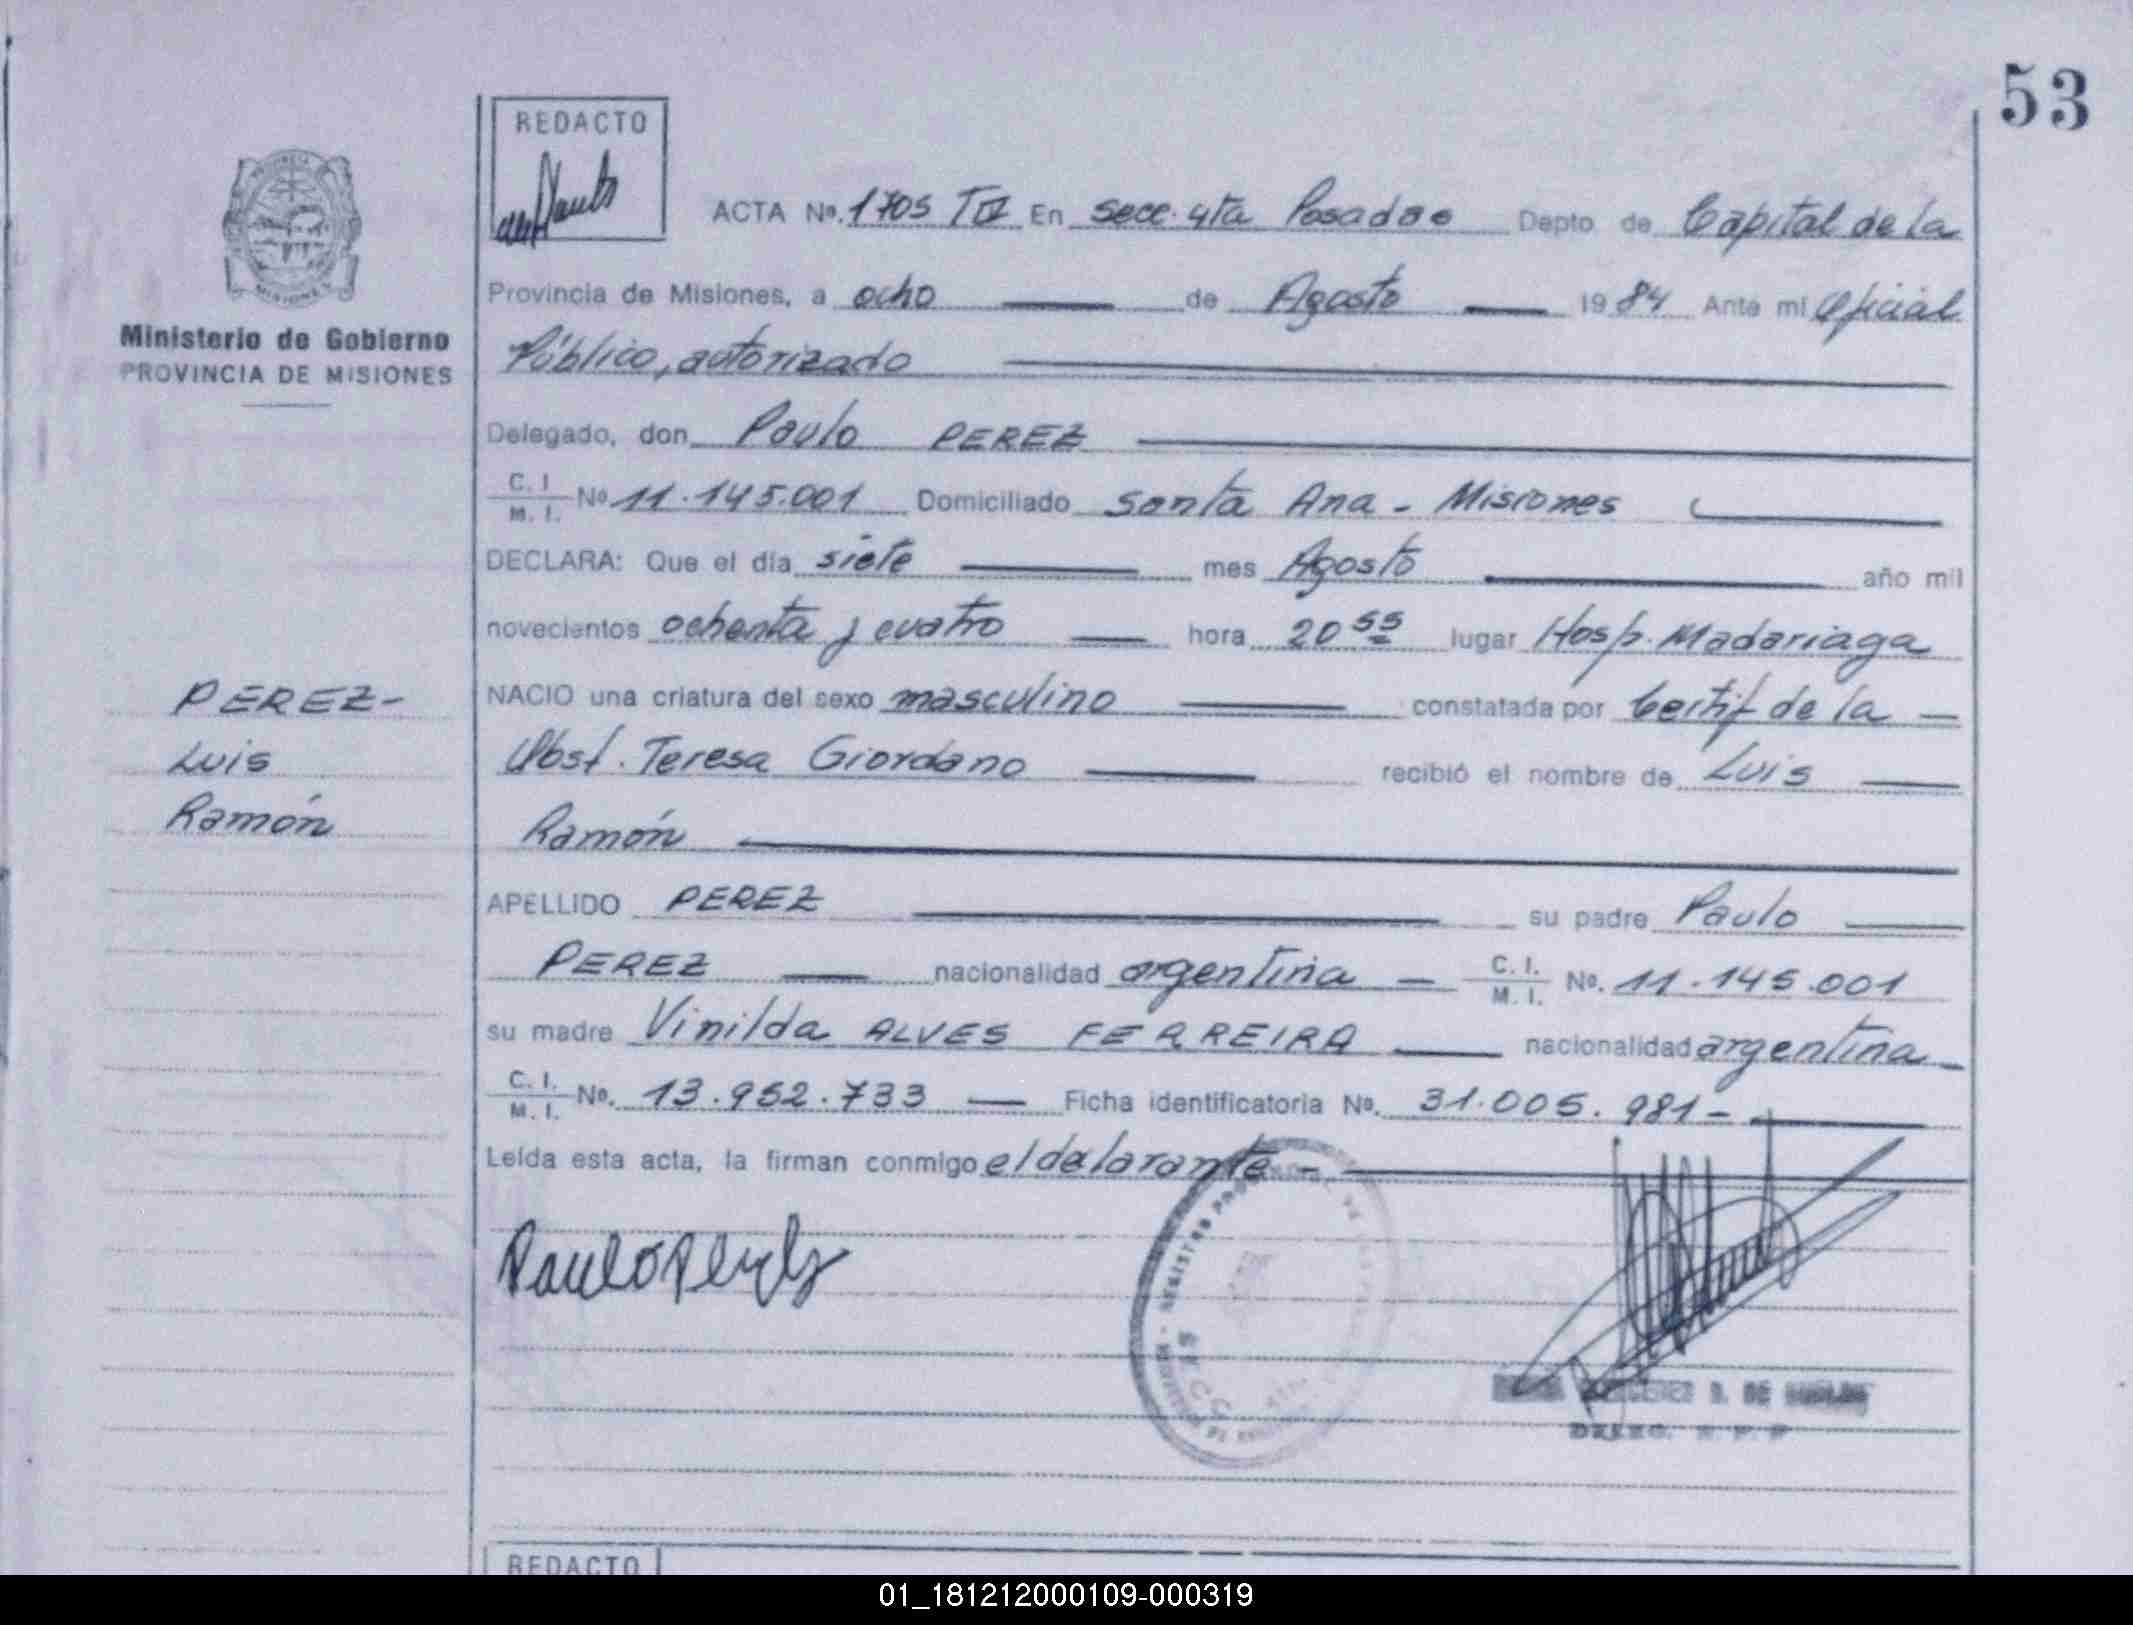 53
REDACTO
ACTA Nº. 1705 TIV En Secc. 4ta Posadas Depto de Capital de la
MISIONES
Provincia de Misiones, a ocho de Agosto 1984 Ante mi Oficial
Ministerio de Gobierno
PROVINCIA DE MISIONES
Público, autorizado
Delegado, don Paulo PEREZ
C. I. M. I. Nº 11.145.001 Domiciliado Santa Ana - Misiones
DECLARA: Que el día siete mes Agosto año mil
novecientos ochenta y cuatro hora 20 55 lugar Hosp. Madariaga
PEREZ-
NACIO una criatura del sexo masculino constatada por Certif de la
Luis
Obst. Teresa Giordano recibió el nombre de Luis
Ramón
Ramón
APELLIDO PEREZ su padre Paulo
PEREZ nacionalidad argentina C. I. M. I. Nº. 11.145.001
su madre Vinilda ALVES FERREIRA nacionalidad argentina
C. I. M. I. Nº. 13.952.733 Ficha identificatoria Nº. 31.005.981-
Leída esta acta, la firman conmigo el delarante-
Paulo Perez
REGISTRO
SECC
REDACTO
01_181212000109-000319